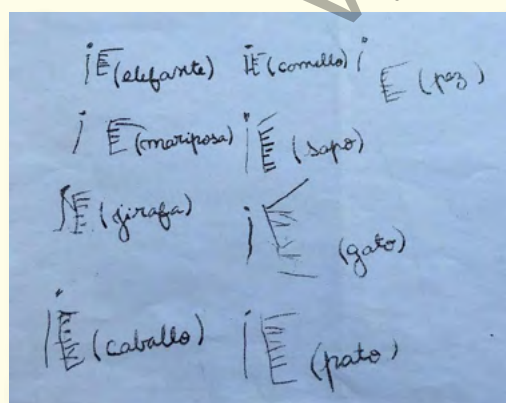 iE (elefante) iE (camello) i E (pez)
i E (mariposa) iE (sapo)
iE (girafa) iE (gato)
iE (caballo) iE (pato)